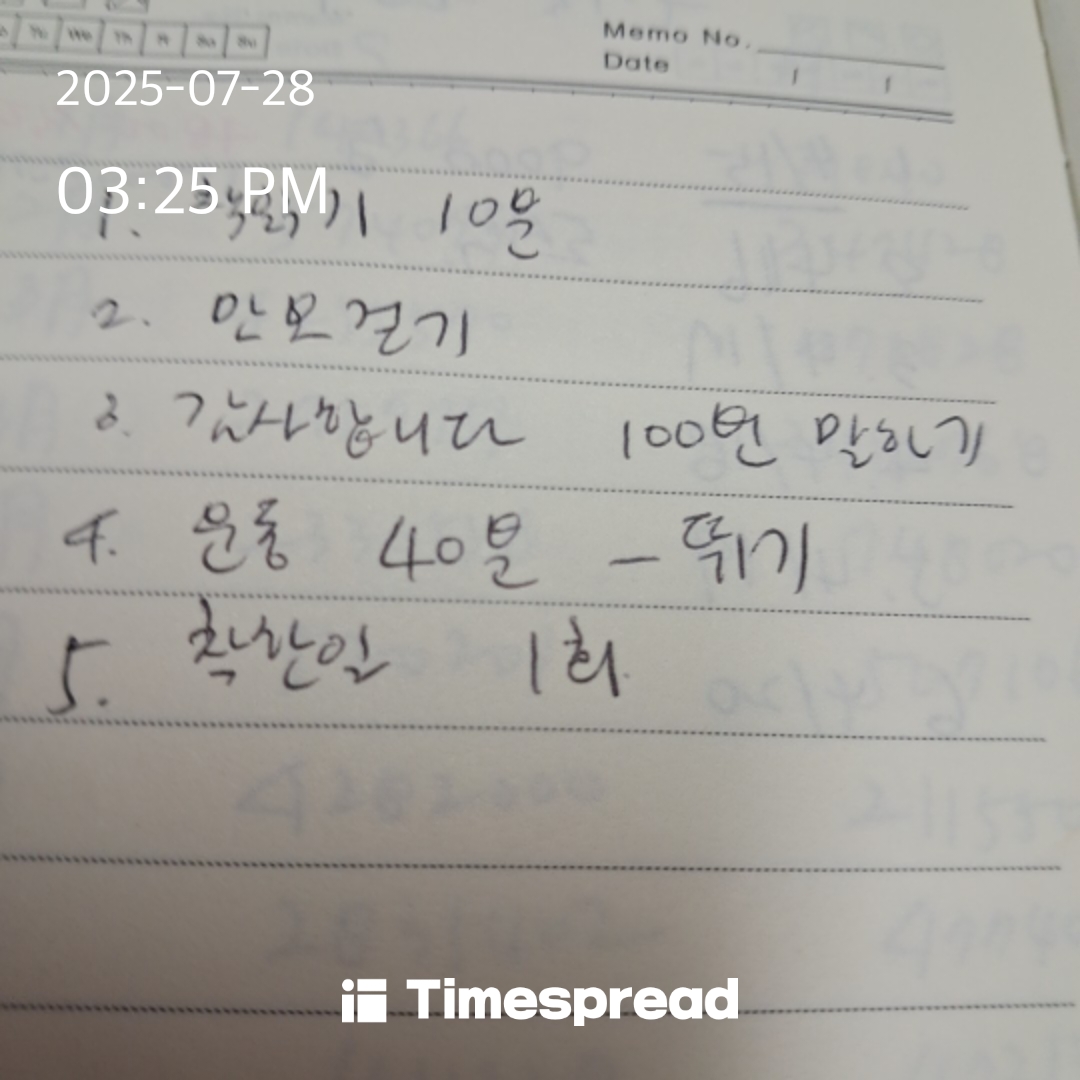 Memo No.
Date / /
2025-07-28
03:25 PM
1. 책읽기 10분
2. 만보걷기
3. 감사합니다 100번 말하기
4. 운동 40분 - 뛰기
5. 착한일 1회
Timespread